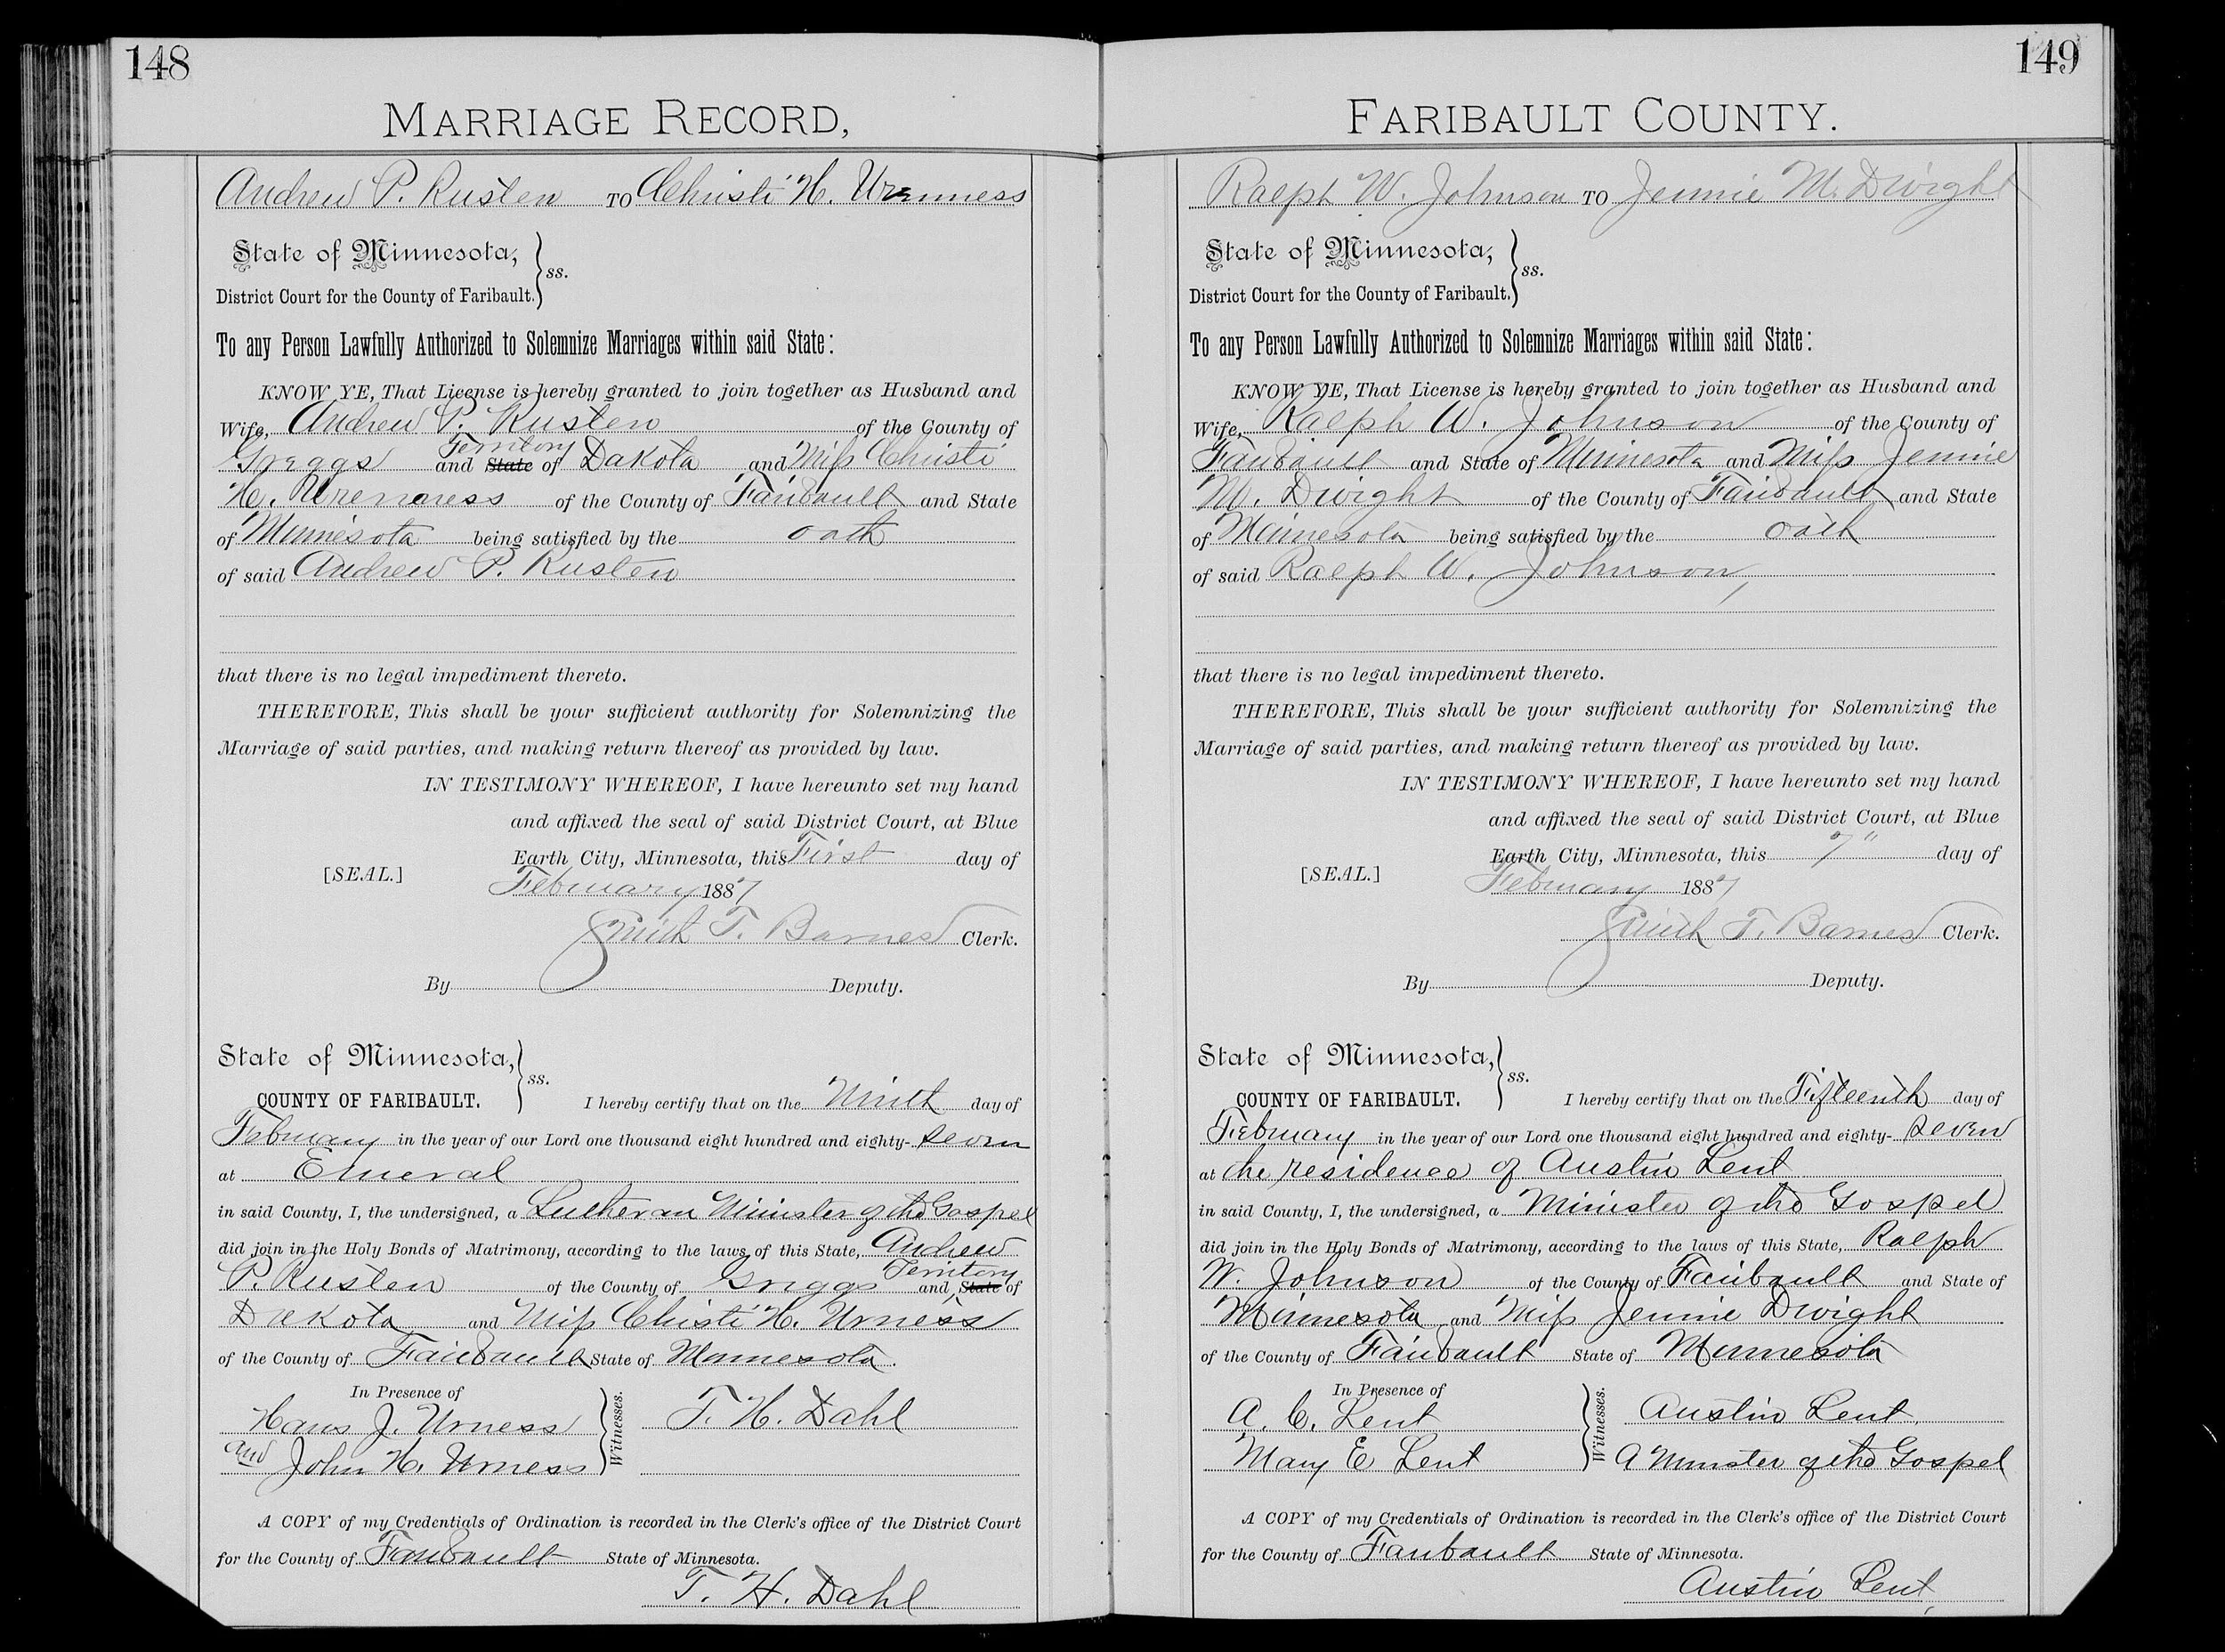 148
MARRIAGE RECORD,
Andrew P. Rusten TO Christi H. Urenness
State of Minnesota,
ss.
District Court for the County of Faribault.
To any Person Lawfully Authorized to Solemnize Marriages within said State:
KNOW YE, That License is hereby granted to join together as Husband and
Wife, Andrew P. Rusten of the County of
Territory
Greggs and State of Dakota and Miss Christi
H. Urenness of the County of Faribault and State
of Minnesota being satisfied by the oath
of said Andrew P. Rusten
that there is no legal impediment thereto.
THEREFORE, This shall be your sufficient authority for Solemnizing the
Marriage of said parties, and making return thereof as provided by law.
IN TESTIMONY WHEREOF, I have hereunto set my hand
and affixed the seal of said District Court, at Blue
Earth City, Minnesota, this First day of
[SEAL.]
February 1887
T. Barnes Clerk.
By Deputy.
State of Minnesota,
ss.
COUNTY OF FARIBAULT. I hereby certify that on the Ninth day of
February in the year of our Lord one thousand eight hundred and eighty-seven
at Emeral
in said County, I, the undersigned, a Lutheran Minister of the Gospel
did join in the Holy Bonds of Matrimony, according to the laws of this State, Andrew
Territory
P. Rusten of the County of Griggs and State of
Dakota and Miss Christi H. Urness
of the County of Faribault State of Minnesota.
In Presence of
Hans J. Urness
and John H. Urness
Witnesses.
T. H. Dahl
A COPY of my Credentials of Ordination is recorded in the Clerk's office of the District Court
for the County of Faribault State of Minnesota.
T. H. Dahl
149
FARIBAULT COUNTY.
Ralph W. Johnson TO Jennie M. Dwight
State of Minnesota,
ss.
District Court for the County of Faribault.
To any Person Lawfully Authorized to Solemnize Marriages within said State:
KNOW YE, That License is hereby granted to join together as Husband and
Wife, Ralph W. Johnson of the County of
Faribault and State of Minnesota and Miss Jennie
M. Dwight of the County of Faribault and State
of Minnesota being satisfied by the oath
of said Ralph W. Johnson,
that there is no legal impediment thereto.
THEREFORE, This shall be your sufficient authority for Solemnizing the
Marriage of said parties, and making return thereof as provided by law.
IN TESTIMONY WHEREOF, I have hereunto set my hand
and affixed the seal of said District Court, at Blue
Earth City, Minnesota, this 7" day of
[SEAL.]
February 1887
T. Barnes Clerk.
By Deputy.
State of Minnesota,
ss.
COUNTY OF FARIBAULT. I hereby certify that on the Fifteenth day of
February in the year of our Lord one thousand eight hundred and eighty-seven
at the residence of Austin Lent
in said County, I, the undersigned, a Minister of the Gospel
did join in the Holy Bonds of Matrimony, according to the laws of this State, Ralph
W. Johnson of the County of Faribault and State of
Minnesota and Miss Jennie Dwight
of the County of Faribault State of Minnesota
In Presence of
A. C. Lent
Mary E Lent
Witnesses.
Austin Lent.
A Minister of the Gospel
A COPY of my Credentials of Ordination is recorded in the Clerk's office of the District Court
for the County of Faribault State of Minnesota.
Austin Lent,